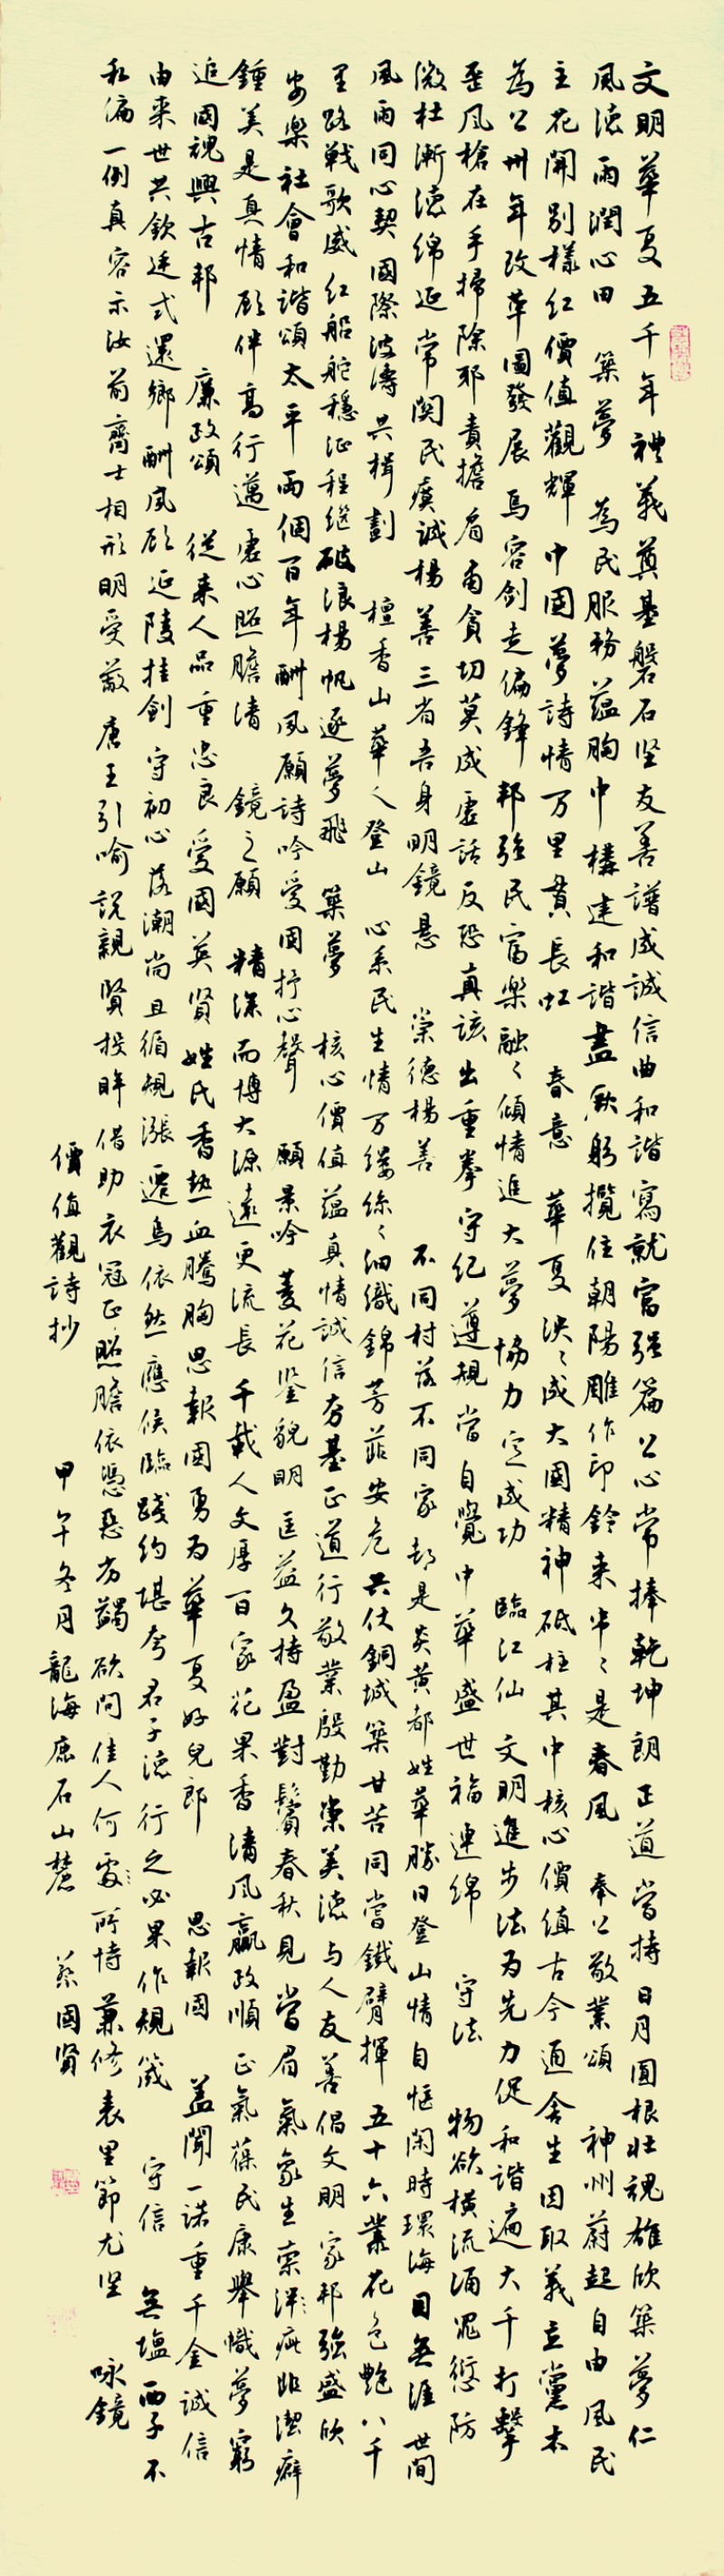 文明華夏五千年禮義奠基磐石堅友善譜成誠信曲和諧寫就富强篇公心常捧乾坤朗正道當持日月圓根壯魂雄欣築夢仁
風德雨潤心田 築夢 為民服務蘊胸中構建和諧盡厥躬攬住朝陽雕作印鈴來串〻是春風 奉公敬業頌 神州蔚起自由風民
主花開別樣红價值觀輝中国夢詩情万里貫長虹 春意 華夏泱〻成大國精神砥柱其中核心價值古今通舍生因取義立黨本
為公卅年改革圖發展焉容剑走偏鋒邦强民富樂融〻傾情進大夢協力定成功 臨江仙 文明進步法为先力促和諧遍大千打擊
歪風槍在手掃除邪責擔肩甬貪切莫成虛話反恐真該出重拳守纪遵規當自覺中華盛世福連綿 守法 物欲橫流涌罪愆防
微杜漸德綿延常関民瘼誠楊善三省吾身明鏡悬 崇德楊善 不同村落不同家却是炎黄都姓華勝日登山情自恆閑時環海目無涯世間
風雨同心契國際波濤共楫劃 檀香山華人登山 心系民生情万縷絲〻细織錦芳菲安危共仗銅城築甘苦同當鐵臂揮五十六叢花色艷八千
里路戰歌威红船舵穩征程继破浪楊帆逐夢飛 築夢 核心價值蘊真情誠信夯基正道行敬業殷勤崇美德与人友善倡文明家邦强盛欣
安樂社會和諧頌太平两個百年酬夙願詩吟愛国抒心聲 願景吟 菱花鉴貌明匡益久持盈對鬢春秋見當眉氣象生索泮疵非潔癖
鍾美是真情願伴高行邁虛心照膽清 鏡之願 精深而博大源遠更流長千載人文厚百家花果香清風贏政順正氣葆民康舉幟夢窮
追國魂興古邦 廉政頌 從來人品重忠良愛國英賢姓氏香熱血騰胸思報國勇为華夏好兒郎 思報国 盖聞一诺重千金誠信
由來世共欽廷式還鄉酬夙願延陵挂劍守初心落潮尚且循規漲遷鳥依然應候臨踐约堪夸君子德行之必果作規箴 守信 無塩西子不
私偏一例真容示汝前齊士相形明受蔽唐王引喻說親賢投眸借助衣冠正照膽依憑惡劣蠲欲问佳人何處所恃兼修表里節尤堅 咏鏡
價值觀詩抄 甲午冬月龍海鹿石山麓 蔡國賢